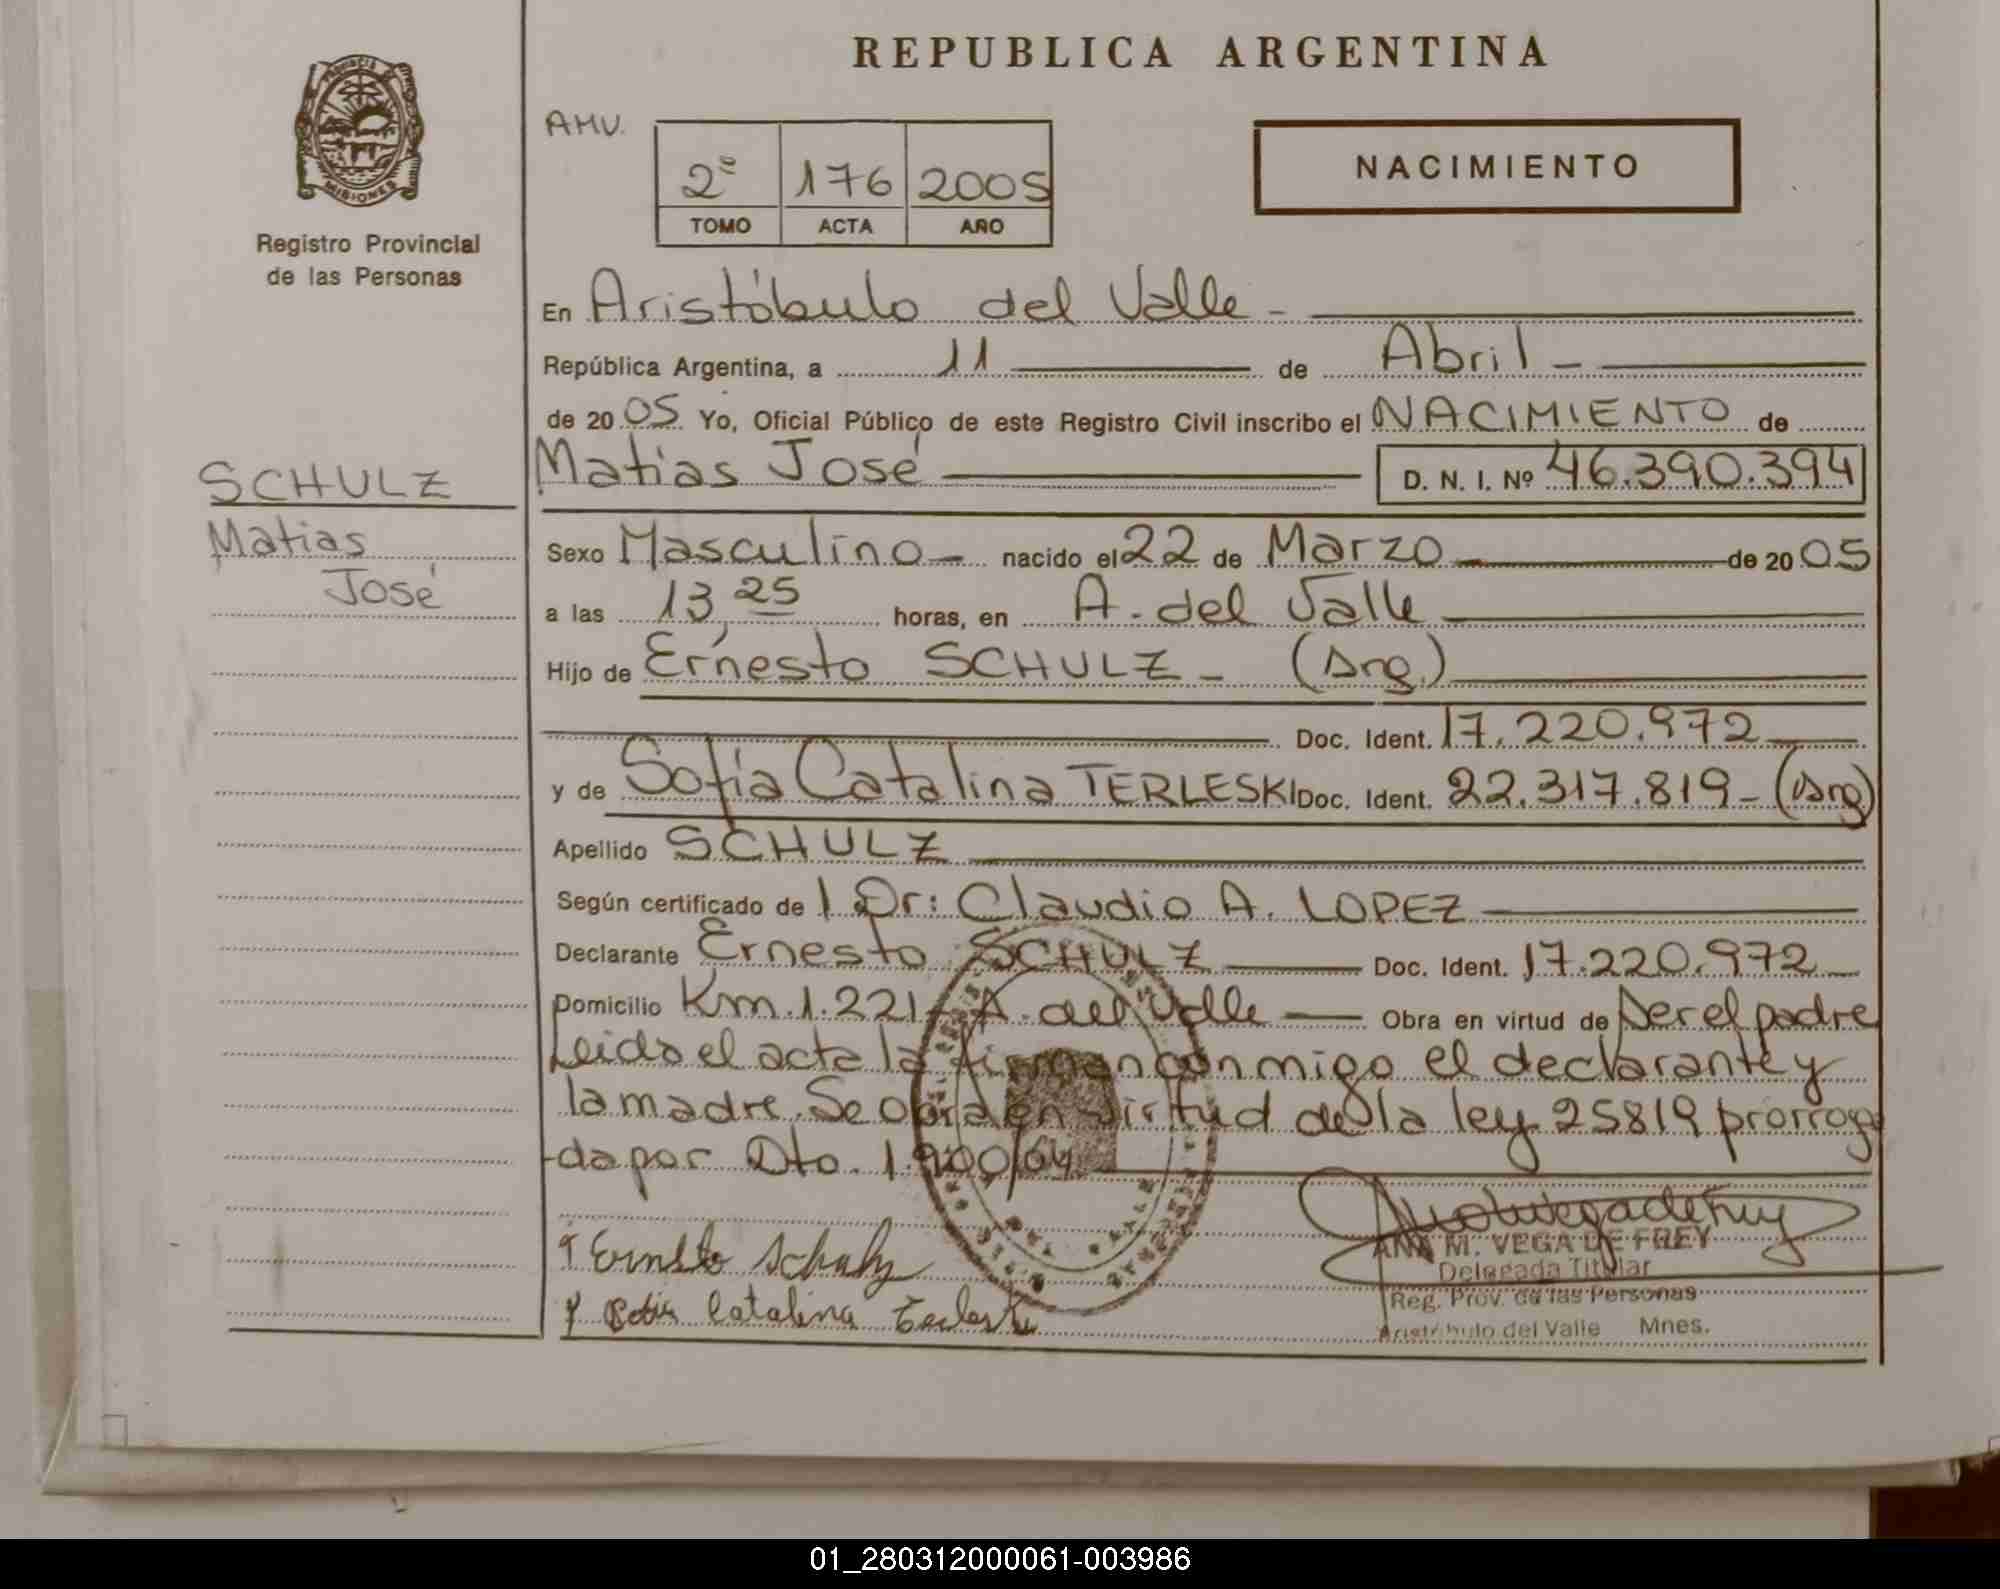 REPUBLICA ARGENTINA
PROVINCIA DE
MISIONES
Registro Provincial
de las Personas
AMV.
2º 176 2005
TOMO ACTA AÑO
NACIMIENTO
En Aristóbulo del Valle -
República Argentina, a 11 de Abril -
de 2005 Yo, Oficial Público de este Registro Civil inscribo el NACIMIENTO de
SCHULZ
Matias José D. N. I. Nº 46.390.394
Matias
José
Sexo Masculino - nacido el 22 de Marzo de 2005
a las 13,25 horas, en A. del Valle
Hijo de Ernesto SCHULZ - (Arg.)
Doc. Ident. 17.220.972
y de Sofía Catalina TERLESKI Doc. Ident. 22.317.819 - (Arg)
Apellido SCHULZ
Según certificado de l Dr: Claudio A. LOPEZ
Declarante Ernesto SCHULZ Doc. Ident. 17.220.972
Domicilio Km.1.221 - A. del Valle Obra en virtud de Ser el padre
Leida el acta la firman conmigo el declarante y
la madre. Se obra en virtud de la ley 25819 prorroga
da por Dto. 1.900/04
Ernesto Schulz
Catalina
ANA M. VEGA DE FREY
Delegada Titular
Reg. Prov. de las Personas
Aristóbulo del Valle Mnes.
01_280312000061-003986